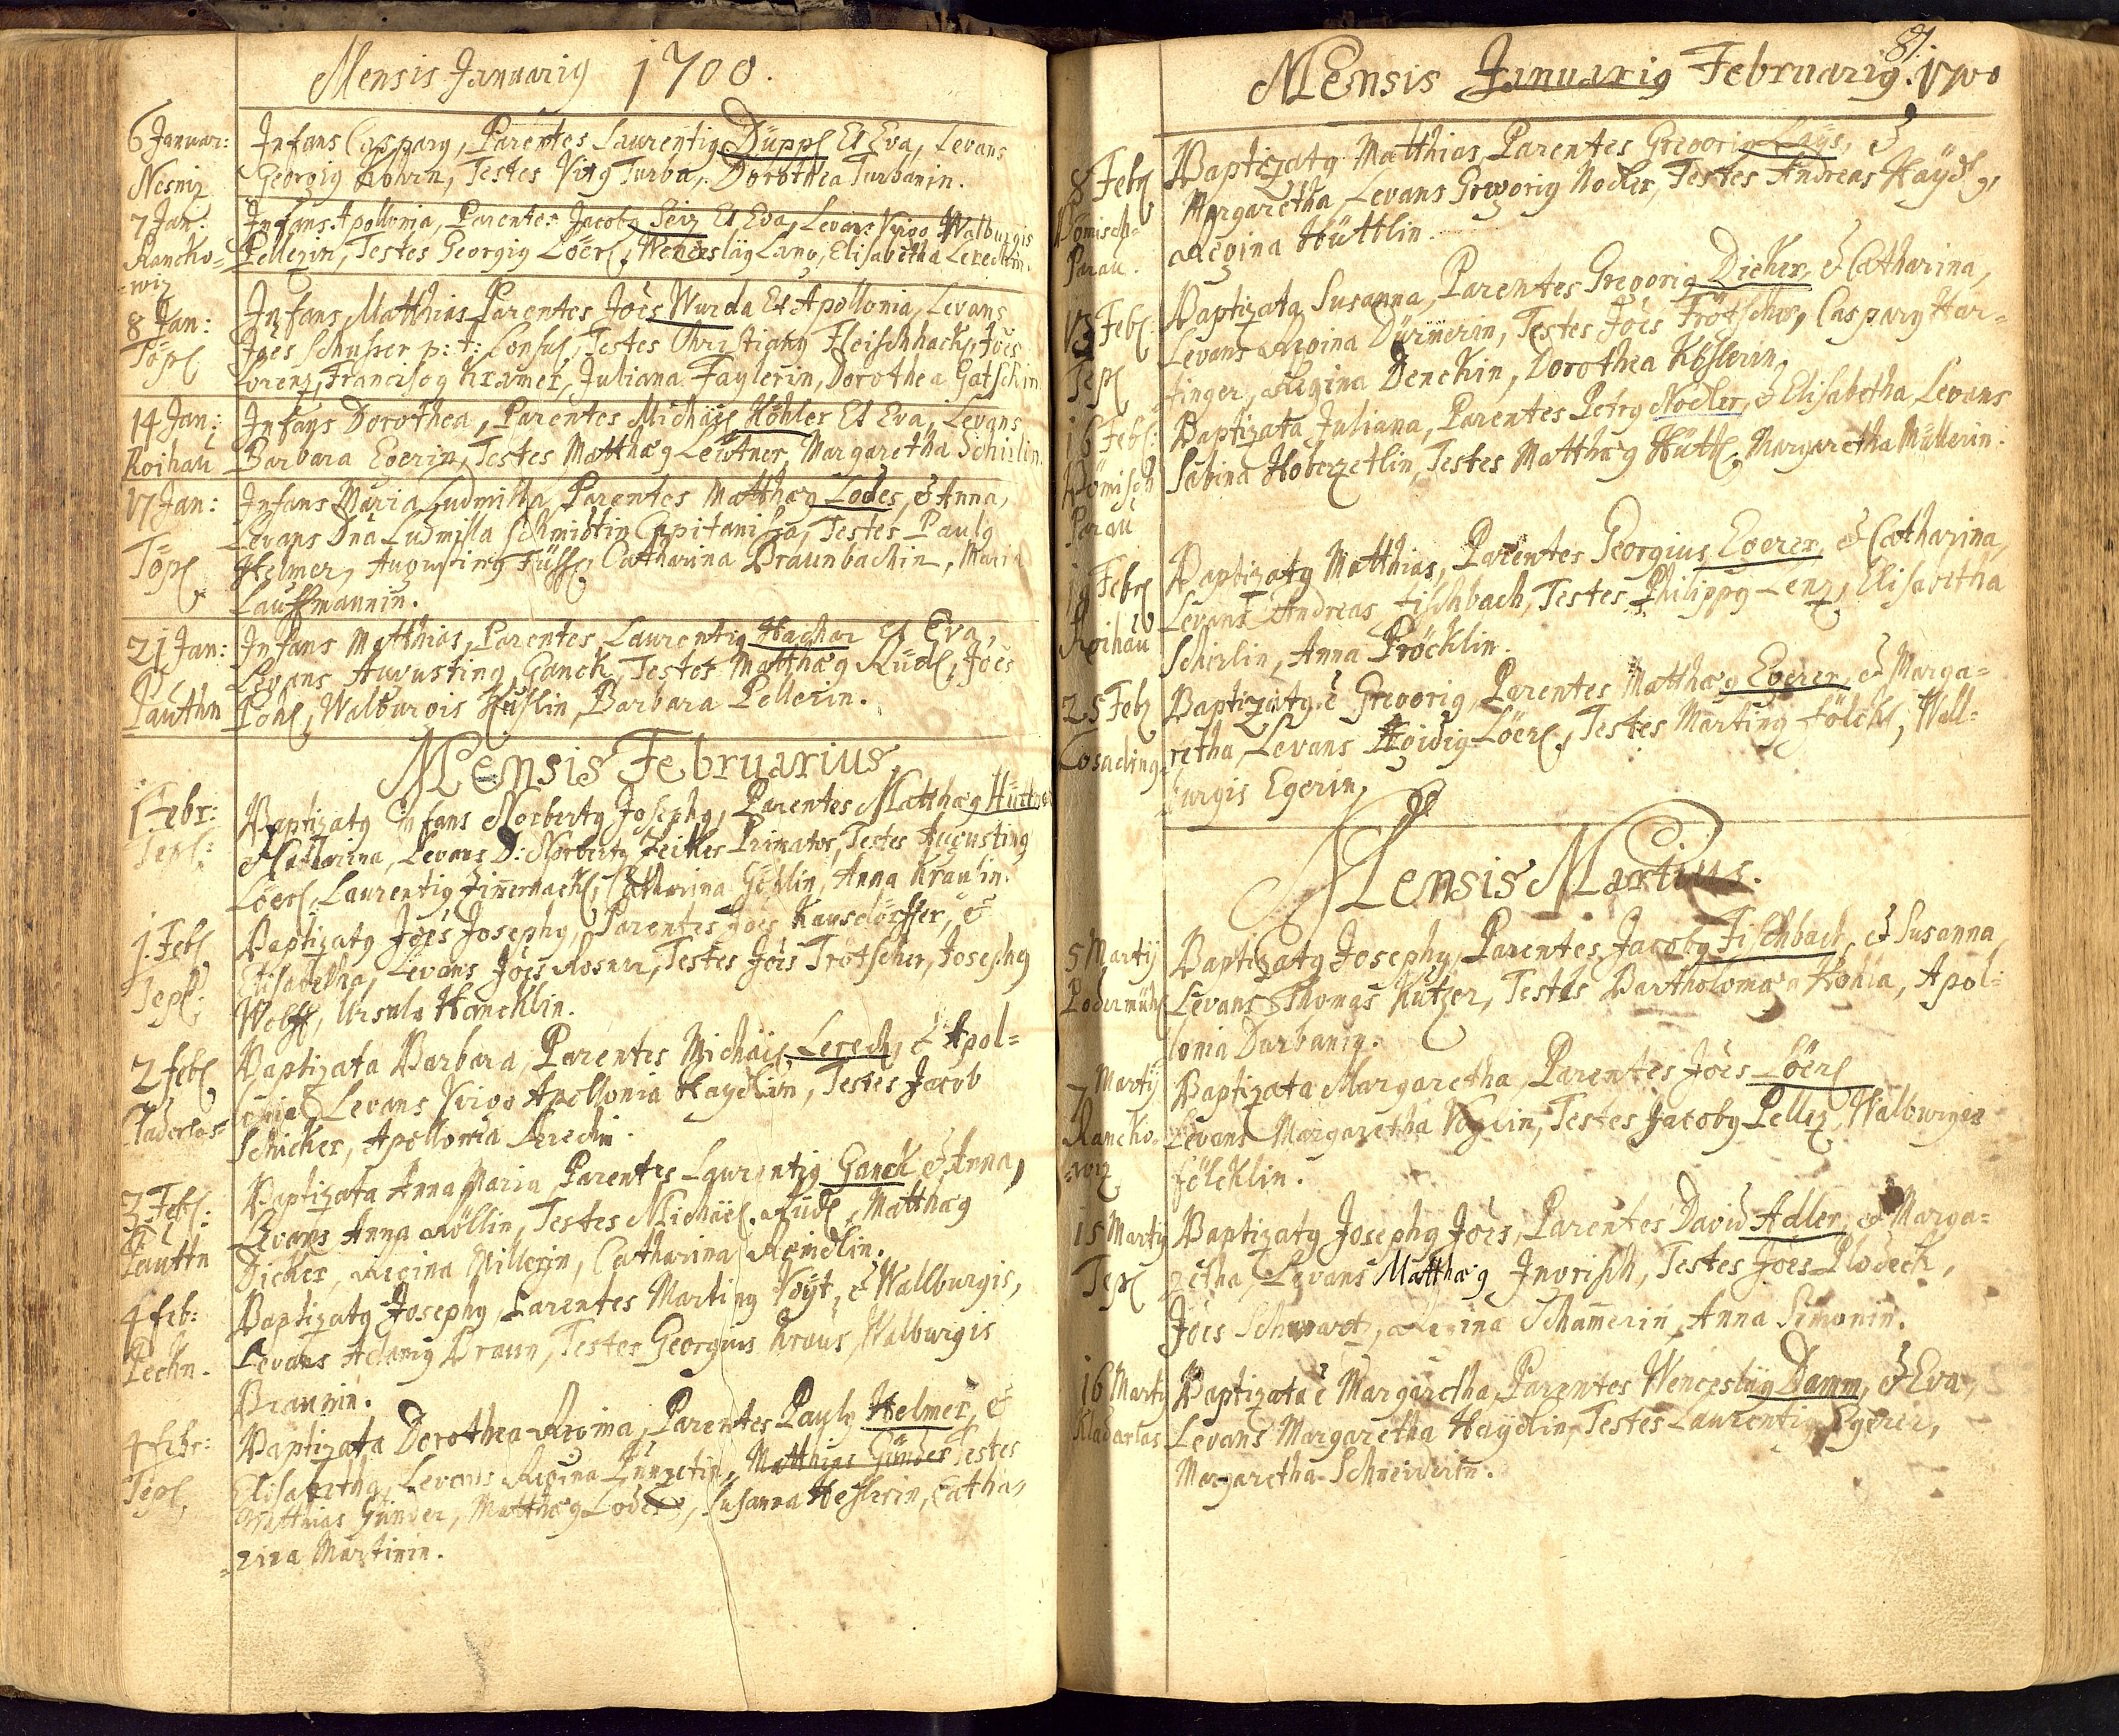 Mensis Januarig 1700.
6 Januar: Infans Caspary, Parentes Laurentig Düppl Et Eva, Levans
Nesniz Georgig Testes Vitg Turba, Dorothea Turbanin.
7 Jan: Infans Apollonia, Parentes Jacobg Seiz Et Eva, Levans Virgo Walburgis
Rancko= Pellerin, Testes Georgig Löerl, Wencesläg Lang, Elisabetha Leredtin.
=wiz
8 Jan: Infans Matthias Parentes Joes Wurda Et Apollonia, Levans
Töpl Joes Schusser p: t: Consul, Testes Christiang Fleischhackl, Joes
Lorenz, Franciscg Kramer, Juliana Faylerin, Dorothea Gatschin
14 Jan: Infans Dorothea, Parentes Michäis Köhler Et Eva, Levans
Roihau Barbara Egerin, Testes Matthæg Leutner, Margaretha Schirlin.
17 Jan: Infans Maria Ludmilla, Parentes Matthæg Lodes, & Anna,
Levans Dna Ludmilla Schmidtin Capitanissa, Testes Paulg
Töpl Helmer, Augusting Füssl, Catharina Braunbachin, Maria
Lauffmannin.
21 Jan: Infans Matthias, Parentes Laurentig Hachar et Eva,
Levans Augusting Ganck, Testes Matthæg Rüdl, Joes
Pauthn Pohl, Walburgis Barbara Pellerin.
Mensis Februarius.
1 Febr: Baptizatg infans Norbertg Josephg, Parentes Matthæg
Tepl: & Catharina, Levans D: Norbertg Zeitler Primator, Testes Augusting
Löerl, Laurentig Zim̄erhackl, Catharina Anna Krausin.
1. Febl Baptizatg Joes Josephg, Parentes Joes Hansdörffer, &
Tepl: Elisabetha, Levans Joes Rosner, Testes Joes Trötscher, Josephg
Wolff, Ursula Hancklin.
2 febl Baptizata Barbara, Parentes Michäis Lerech, & Apol=
Levans Virgo Apollonia Haydlin, Testes Jacob
Schicker, Apollonia
3. Febl: Baptizata Anna Maria Parentes Laurentig Ganck & Anna,
Levans Anna Röllin, Testes Michäel Rüdl, Matthæg
Pauttn Dicker, Regina Millerin, Catharina Reindlin.
4 feb: Baptizatg Josephg, Parentes Marting Voyt, & Wallburgis,
Levans Adamg Braun, Testes Georgius Kraus, Walburgis
Peckn. Braunin.
4 febr: Baptizata Dorothea Regina, Parentes Paulg Helmer, &
Elisabetha, Levans Regina Matthias Günder Testes
Tepl Matthias Günder, Matthæg Lodes, Susanna Heslerin, Catha=
=rina Martinin.
87.
Mensis Januarig Februarig. 1700
8 Febl Baptizatg Matthias, Parentes Gregorig Lays, &
Margaretha, Levans Gregorig Nodler, Testes Andreas Haydl,
Pömisch= Regina Hüttlin.
Parau.
13 Febl Baptizata Susanna, Parentes Gregorig Dicker, & Catharina,
Levans Regina Dürnerin, Testes Joes Trötscher, Caspary Har=
Tepl tinger, Regina Denckin, Dorothea Köslerin.
16 Febl: Baptizata Juliana, Parentes Petrg Nodler, & Elisabetha, Levans
Pömisch Sabina Hoberzetlin, Testes Matthæg Hüttl, Margaretha Müllerin.
Parau
Febrl Baptizatg Matthias, Parentes Georgius Egerer, & Catharina,
Levans Andreas Fischbach, Testes Philippg Lenz, Elisabetha
Roihau Schirlin, Anna Pröcklin.
25 Feb Baptizatg è Gregorig, Parentes Matthæg Egerer, & Marga=
retha, Levans Löerl, Testes Marting Fölckl, Wall=
Cosading burgis Egerin.
Mensis Martius.
5 Martij Baptizatg Josephg, Parentes Jacobg Fischbach, & Susanna
Podermühl Levans Thomas Kutzer, Testes Bartholomæg Kohla, Apol=
lonia Durbanin.
7 Martij Baptizata Margaretha, Parentes Joes Löerl
Rancko= Levans Margaretha Testes Jacobg Peller, Walburgis
=wiz fölcklin.
15 Martij Baptizatg Josephg Joes, Parentes David Adler, & Marga=
Tepl retha, Levans Matthæg Ingrisch, Testes Joes Plodeck,
Joes Schwartz, Regina Scham̄erin, Anna Simonin.
16 Martij Baptizata è Margaretha, Parentes Wenceslag Damm, & Eva,
Kladarlas Levans Margaretha Haydlin, Testes Laurentig Egerer,
Margaretha Schneiderin.